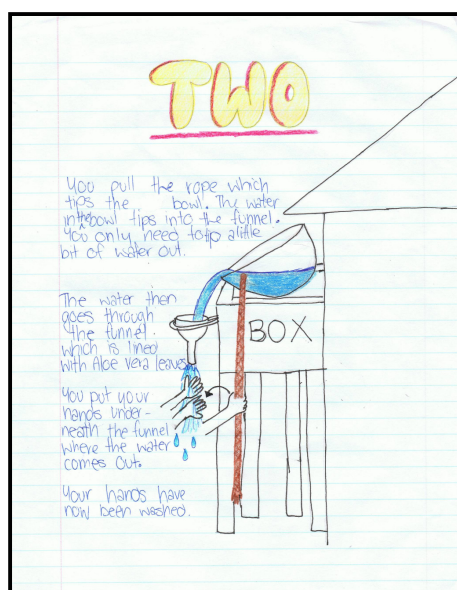 TWO
You pull the rope which
tips the bowl. The water
in the bowl tips into the funnel.
You only need to tip a little
bit of water out.
The water then
goes through
the funnel.
which is lined
with Aloe Vera leaves
You put your
hands under-
neath the funnel
where the water
comes out.
Your hands have
now been washed.
BOX